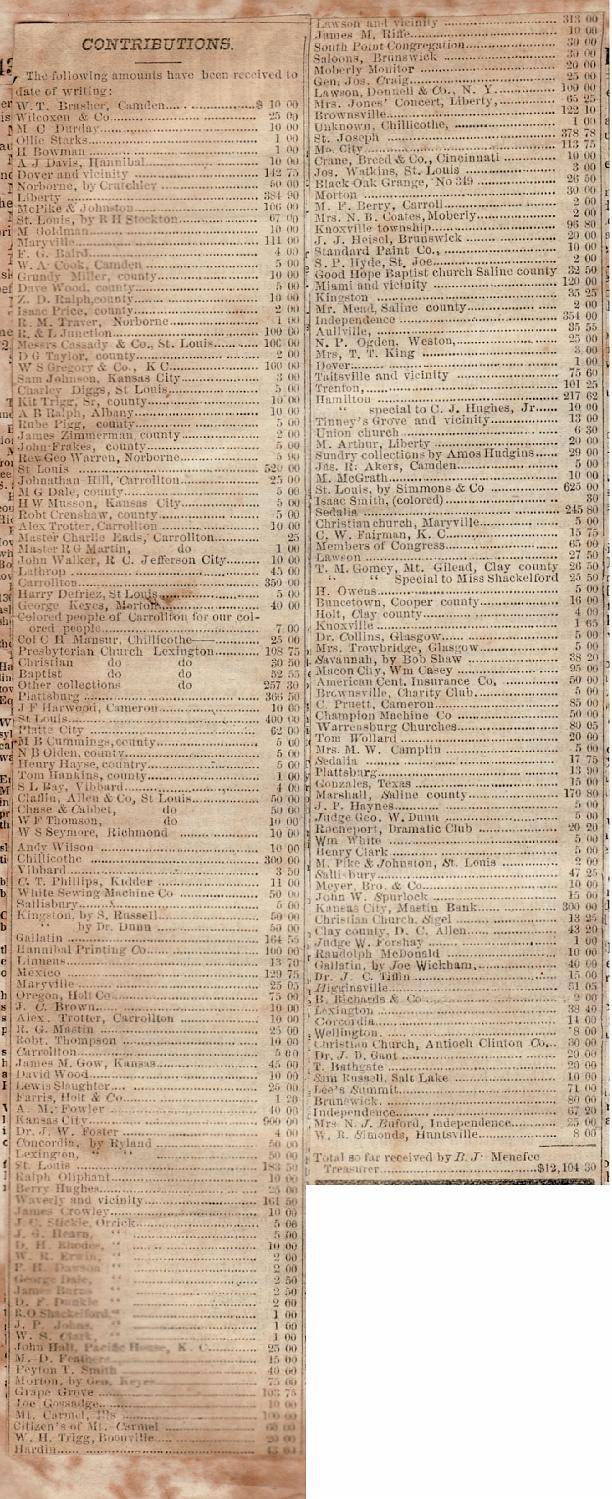 CONTRIBUTIONS.
The following amounts have been received to
date of writing:
W. T. Brasher, Camden $ 10 00
Wilcoxen & Co 25 00
M C Durday 10 00
Ollie Starks 1 00
H Bowman 1 00
A J Davis, Hannibal 10 00
Dover and vicinity 142 75
Norborne, by Crutchley 50 00
Liberty 384 90
McPike & Johnston 106 00
St. Louis, by R H Stockton 67 00
M Goldman 10 00
Maryville 111 00
F. G. Baird 4 00
W. A. Cook, Camden 5 00
Grundy Miller, county 10 00
Dave Wood, county 5 00
Z. D. Ralph, county 10 00
Isaac Price, county 2 00
R. M. Traver, Norborne 1 00
R. & L Junction 100 00
Messrs Cassady & Co., St. Louis 100 00
D G Taylor, county 2 00
W S Gregory & Co., K C 100 00
Sam Johnson, Kansas City 3 00
Charley Diggs, St Louis 5 00
Kit Trigg, Sr, county 10 00
A B Ralph, Albany 10 00
Rube Pigg, county 5 00
James Zimmerman, county 2 00
John Frakes, county 5 00
Rev Geo Warren, Norborne 5 00
St Louis 520 00
Johnathan Hill, Carrollton 25 00
M G Dale, county 5 00
H W Musson, Kansas City 5 00
Robt Crenshaw, county 5 00
Alex Trotter, Carrollton 10 00
Master Charlie Eads, Carrollton 25
Master R G Martin, do 1 00
John Walker, R C. Jefferson City 10 00
Lathrop 45 00
Carrollton 350 00
Harry Defriez, St Louis 5 00
George Keyes, Morton 40 00
Colored people of Carrollton for our col-
ored people 7 00
Col C H Mansur, Chillicothe 25 00
Presbyterian Church Lexington 108 75
Christian do do 30 50
Baptist do do 52 55
Other collections do 257 30
Plattsburg 366 50
J F Harwood, Cameron 10 00
St Louis 400 00
Platte City 62 00
M B Cummings, county 5 00
N B Olden, county 5 00
Henry Hayse, county 5 00
Tom Hankins, county 1 00
S L Bay, Vibbard 4 00
Claflin, Allen & Co, St Louis 50 00
Chase & Cabbet, do 50 00
W F Thomson, do 10 00
W S Seymore, Richmond 10 00
Andy Wilson 10 00
Chillicothe 300 00
Vibbard 3 50
C. T. Phillips, Kidder 11 00
White Sewing Machine Co 50 00
Sallisbury 5 00
Kingston, by S. Russell 50 00
" by Dr. Dunn 50 00
Gallatin 164 55
Hannibal Printing Co 100 00
Linneus 13 70
Mexico 129 75
Maryville 25 05
Oregon, Holt Co 75 00
J. C. Brown 10 00
Alex. Trotter, Carrollton 10 00
R. G. Mastin 25 00
Robt. Thompson 10 00
Carrollton 5 00
James M. Gow, Kansas 45 00
David Wood 10 00
Lewis Slaughter 25 00
Farris, Holt & Co 1 20
A. M. Fowler 40 00
Kansas City 900 00
Dr. J. W. Foster 4 00
Concordia, by Ryland 50 00
Lexington, " " 50 00
St. Louis 183 50
Ralph Oliphant 10 00
Berry Hughes 25 00
Waverly and vicinity 161 50
James Crowley 10 00
J. C. Stickle, Orrick 5 00
J. G. Hearn, " 5 50
D. H. Rhodes, " 10 00
W. R. Erwin, " 2 00
P. H. Dawson " 2 00
George Dale, " 2 50
James Burns " 2 50
D. F. Dunkle " 2 00
R. O Shackelford, " 1 00
J. P. Johns, " 1 00
W. S. Clark, " 1 00
John Hall, Pacific House, K. C. 25 00
M. D. Feathers 15 00
Peyton T. Smith 40 00
Morton, by Geo. Keyes 75 00
Grape Grove 103 75
Joe Gossadge 10 00
Mt. Carmel, Ills 100 00
Citizen's of Mt. Carmel
W. H. Trigg, Boonville 20 00
Hardin
Lawson and vicinity 313 00
James M. Riffe 10 00
South Point Congregation 30 00
Saloons, Brunswick 30 00
Moberly Monitor 20 00
Gen. Jos. Craig 25 00
Lawson, Donnell & Co., N. Y. 100 00
Mrs. Jones' Concert, Liberty, 65 25
Brownsville 122 10
Unknown, Chillicothe, 1 00
St. Joseph 378 78
Mo. City 113 75
Crane, Breed & Co., Cincinnati 10 00
Jos. Watkins, St. Louis 3 00
Black Oak Grange, No 349 26 50
Morton 30 00
M. P. Berry, Carroll 2 00
Mrs. N. B. Coates, Moberly 2 00
Knoxville township 96 80
J. J. Heisel, Brunswick 20 00
Standard Paint Co., 10 00
S. P. Hyde, St, Joe 2 00
Good Hope Baptist church Saline county 32 50
Miami and vicinity 120 00
Kingston 35 25
Mr. Mead, Saline county 2 00
Independence 354 00
Aullville, 35 55
N. P. Ogden, Weston, 25 00
Mrs, T. T. King 3 00
Dover 1 00
Taitsville and vicinity 75 60
Trenton, 101 25
Hamilton 217 62
" special to C. J. Hughes, Jr 10 00
Tinney's Grove and vicinity 13 00
Union church 6 30
M. Arthur, Liberty 20 00
Sundry collections by Amos Hudgins 29 00
Jas. R. Akers, Camden 5 00
M. McGrath 10 00
St. Louis, by Simmons & Co 625 00
Isaac Smith, (colored) 30
Sedalia 245 80
Christian church, Maryville 5 00
C. W. Fairman, K. C 15 75
Members of Congress 65 00
Lawson 27 50
T. M. Gomey, Mt. Gilead, Clay county 26 50
" " Special to Miss Shackelford 25 50
H. Owens 5 00
Buncetown, Cooper county 16 00
Holt, Clay county 4 00
Knoxville 1 65
Dr. Collins, Glasgow 5 00
Mrs. Trowbridge, Glasgow 5 00
Savannah, by Bob Shaw 38 20
Macon City, Wm Casey 95 00
American Cent. Insurance Co, 50 00
Brownsville, Charity Club 5 00
C. Pruett, Cameron 85 00
Champion Machine Co 50 00
Warrensburg Churches 89 05
Tom Wollard 20 00
Mrs. M. W. Camplin 5 00
Sedalia 17 75
Plattsburg 13 90
Gonzales, Texas 15 00
Marshall, Saline county 170 80
J. P. Haynes 5 00
Judge Geo. W. Dunn 5 00
Rocheport, Dramatic Club 20 20
Wm White 5 00
Henry Clark 5 00
M. Pike & Johnston, St. Louis 2 00
Sallisbury 47 25
Meyer, Bro. & Co 10 00
John W. Spurlock 15 00
Kansas City, Mastin Bank 300 00
Christian Church, Sigel 13 25
Clay county, D. C. Allen 43 20
Judge W. Forshay 1 00
Randolph McDonald 10 00
Gallatin, by Joe Wickham, 40 00
Dr. J. C. Tiffin 15 00
Higginsville 51 05
B. Richards & Co 2 00
Lexington 38 40
Corcordia 14 00
Wellington 8 00
Christian Church, Antioch Clinton Co, 30 00
Dr. J. D. Gant 20 00
T. Bathgate 20 00
Sam Russell, Salt Lake 10 00
Lee's Summit 71 00
Brunswick 80 00
Independence 67 20
Mrs N. J. Buford, Independence 25 00
W. R. Simonds, Huntsville 8 00
Total so far received by B. J. Menefee
Treasurer $12,104 30